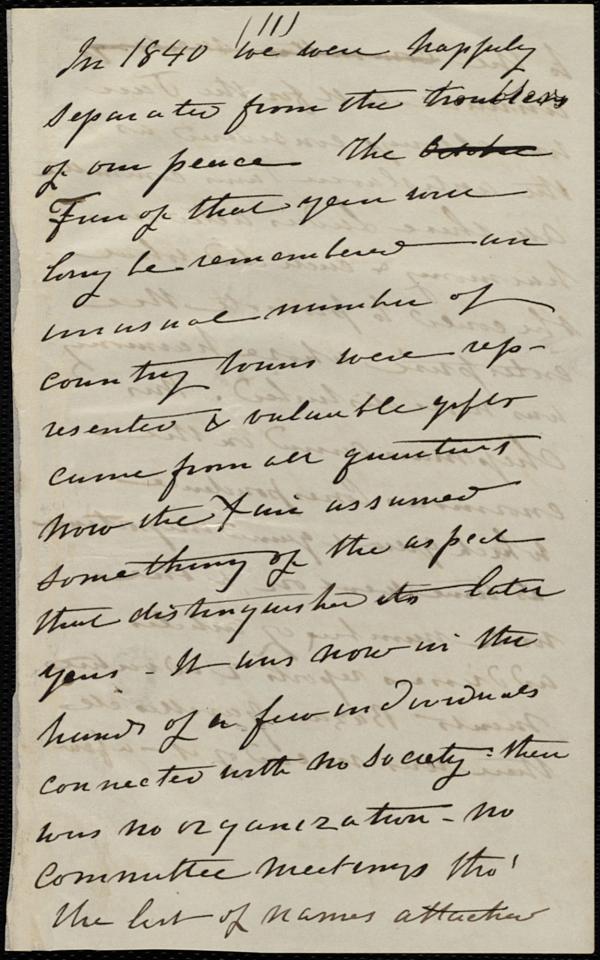 (11)
In 1840 we were happily
separated from the troublers
of our peace The October
Fair of that year will
long be remembered - an
unusual number of
country towns were rep-
resented & valuable gifts
came from all quarters
Now the Fair assumed
something of the aspect
that distinguished its later
years - It was now in the
hands of a few individuals
connected with no society: there
was no organization - no
committee meetings tho'
the list of names attached